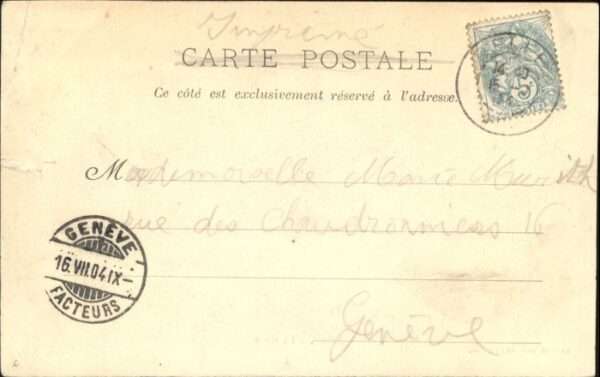 Imprimé
CARTE POSTALE
Ce côté est exclusivement réservé à l'adresse.
Mademoiselle Marie
rue des Chaudronniers 16
Genève
GENÈVE
16.VII.04.IX—
FACTEURS